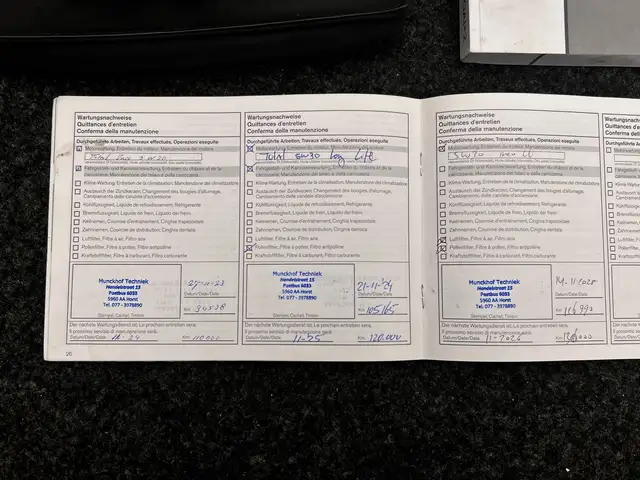 Wartungsnachweise
Quittances d'entretien
Conferma della manutenzione
Durchgeführte Arbeiten, Travaux effectués, Operazioni eseguite
Motorwartung, Entretien du moteur, Manutenzione del motore
Fahrgestell- und Karosseriewartung, Entretien du châssis et de la
carrosserie, Manutenzione del telaio e della carrozzeria
Klima-Wartung, Entretien de la climatisation, Manutenzione del climatizzatore
Austausch der Zündkerzen, Changement des bougies d'allumage,
Cambiamento delle candele d'accensione
Kühlflüssigkeit, Liquide de refroidissement, Refrigerante
Bremsflüssigkeit, Liquide de frein, Liquido dei freni
Keilriemen, Courroie d'entraînement, Cinghia trapezoidale
Zahnriemen, Courroie de distribution, Cinghia dentata
Luftfilter, Filtre à air, Filtro aria
Pollenfilter, Filtre à pollen, Filtro antipolline
Kraftstofffilter, Filtre à carburant, Filtro carburante
Munckhof Techniek
Handelstraat 15
Postbus 6033
5960 AA Horst
Tel. 077 - 3978890
27-11-23
Datum/Date/Data
Km
Stempel, Cachet, Timbro
Der nächste Wartungsdienst ist: Le prochain entretien sera:
Il prossimo servizio di manutenzione sarà:
Datum/Date/Data 11-24 Km 110.000
26
Wartungsnachweise
Quittances d'entretien
Conferma della manutenzione
Durchgeführte Arbeiten, Travaux effectués, Operazioni eseguite
Total 5W30 Long Life
Fahrgestell- und Karosseriewartung, Entretien du châssis et de la
carrosserie, Manutenzione del telaio e della carrozzeria
Klima-Wartung, Entretien de la climatisation, Manutenzione del climatizzatore
Austausch der Zündkerzen, Changement des bougies d'allumage,
Cambiamento delle candele d'accensione
Kühlflüssigkeit, Liquide de refroidissement, Refrigerante
Bremsflüssigkeit, Liquide de frein, Liquido dei freni
Keilriemen, Courroie d'entraînement, Cinghia trapezoidale
Zahnriemen, Courroie de distribution, Cinghia dentata
Luftfilter, Filtre à air, Filtro aria
Pollenfilter, Filtre à pollen, Filtro antipolline
Kraftstofffilter, Filtre à carburant, Filtro carburante
Munckhof Techniek
Handelstraat 15
Postbus 6033
5960 AA Horst
Tel. 077 - 3978890
21-11-24
Datum/Date/Data
Km 105165
Stempel, Cachet, Timbro
Der nächste Wartungsdienst ist: Le prochain entretien sera:
Il prossimo servizio di manutenzione sarà:
Datum/Date/Data 11-25 Km 120.000
Wartungsnachweise
Quittances d'entretien
Conferma della manutenzione
Durchgeführte Arbeiten, Travaux effectués, Operazioni eseguite
Motorwartung, Entretien du moteur, Manutenzione del motore
Fahrgestell- und Karosseriewartung, Entretien du châssis et de la
carrosserie, Manutenzione del telaio e della carrozzeria
Klima-Wartung, Entretien de la climatisation, Manutenzione del climatizzatore
Austausch der Zündkerzen, Changement des bougies d'allumage,
Cambiamento delle candele d'accensione
Kühlflüssigkeit, Liquide de refroidissement, Refrigerante
Bremsflüssigkeit, Liquide de frein, Liquido dei freni
Keilriemen, Courroie d'entraînement, Cinghia trapezoidale
Zahnriemen, Courroie de distribution, Cinghia dentata
Luftfilter, Filtre à air, Filtro aria
Pollenfilter, Filtre à pollen, Filtro antipolline
Kraftstofffilter, Filtre à carburant, Filtro carburante
Munckhof Techniek
Handelstraat 15
Postbus 6033
5960 AA Horst
Tel. 077 - 3978890
Datum/Date/Data
Km 116993
Stempel, Cachet, Timbro
Der nächste Wartungsdienst ist: Le prochain entretien sera:
Il prossimo servizio di manutenzione sarà:
Datum/Date/Data 11-2026 Km